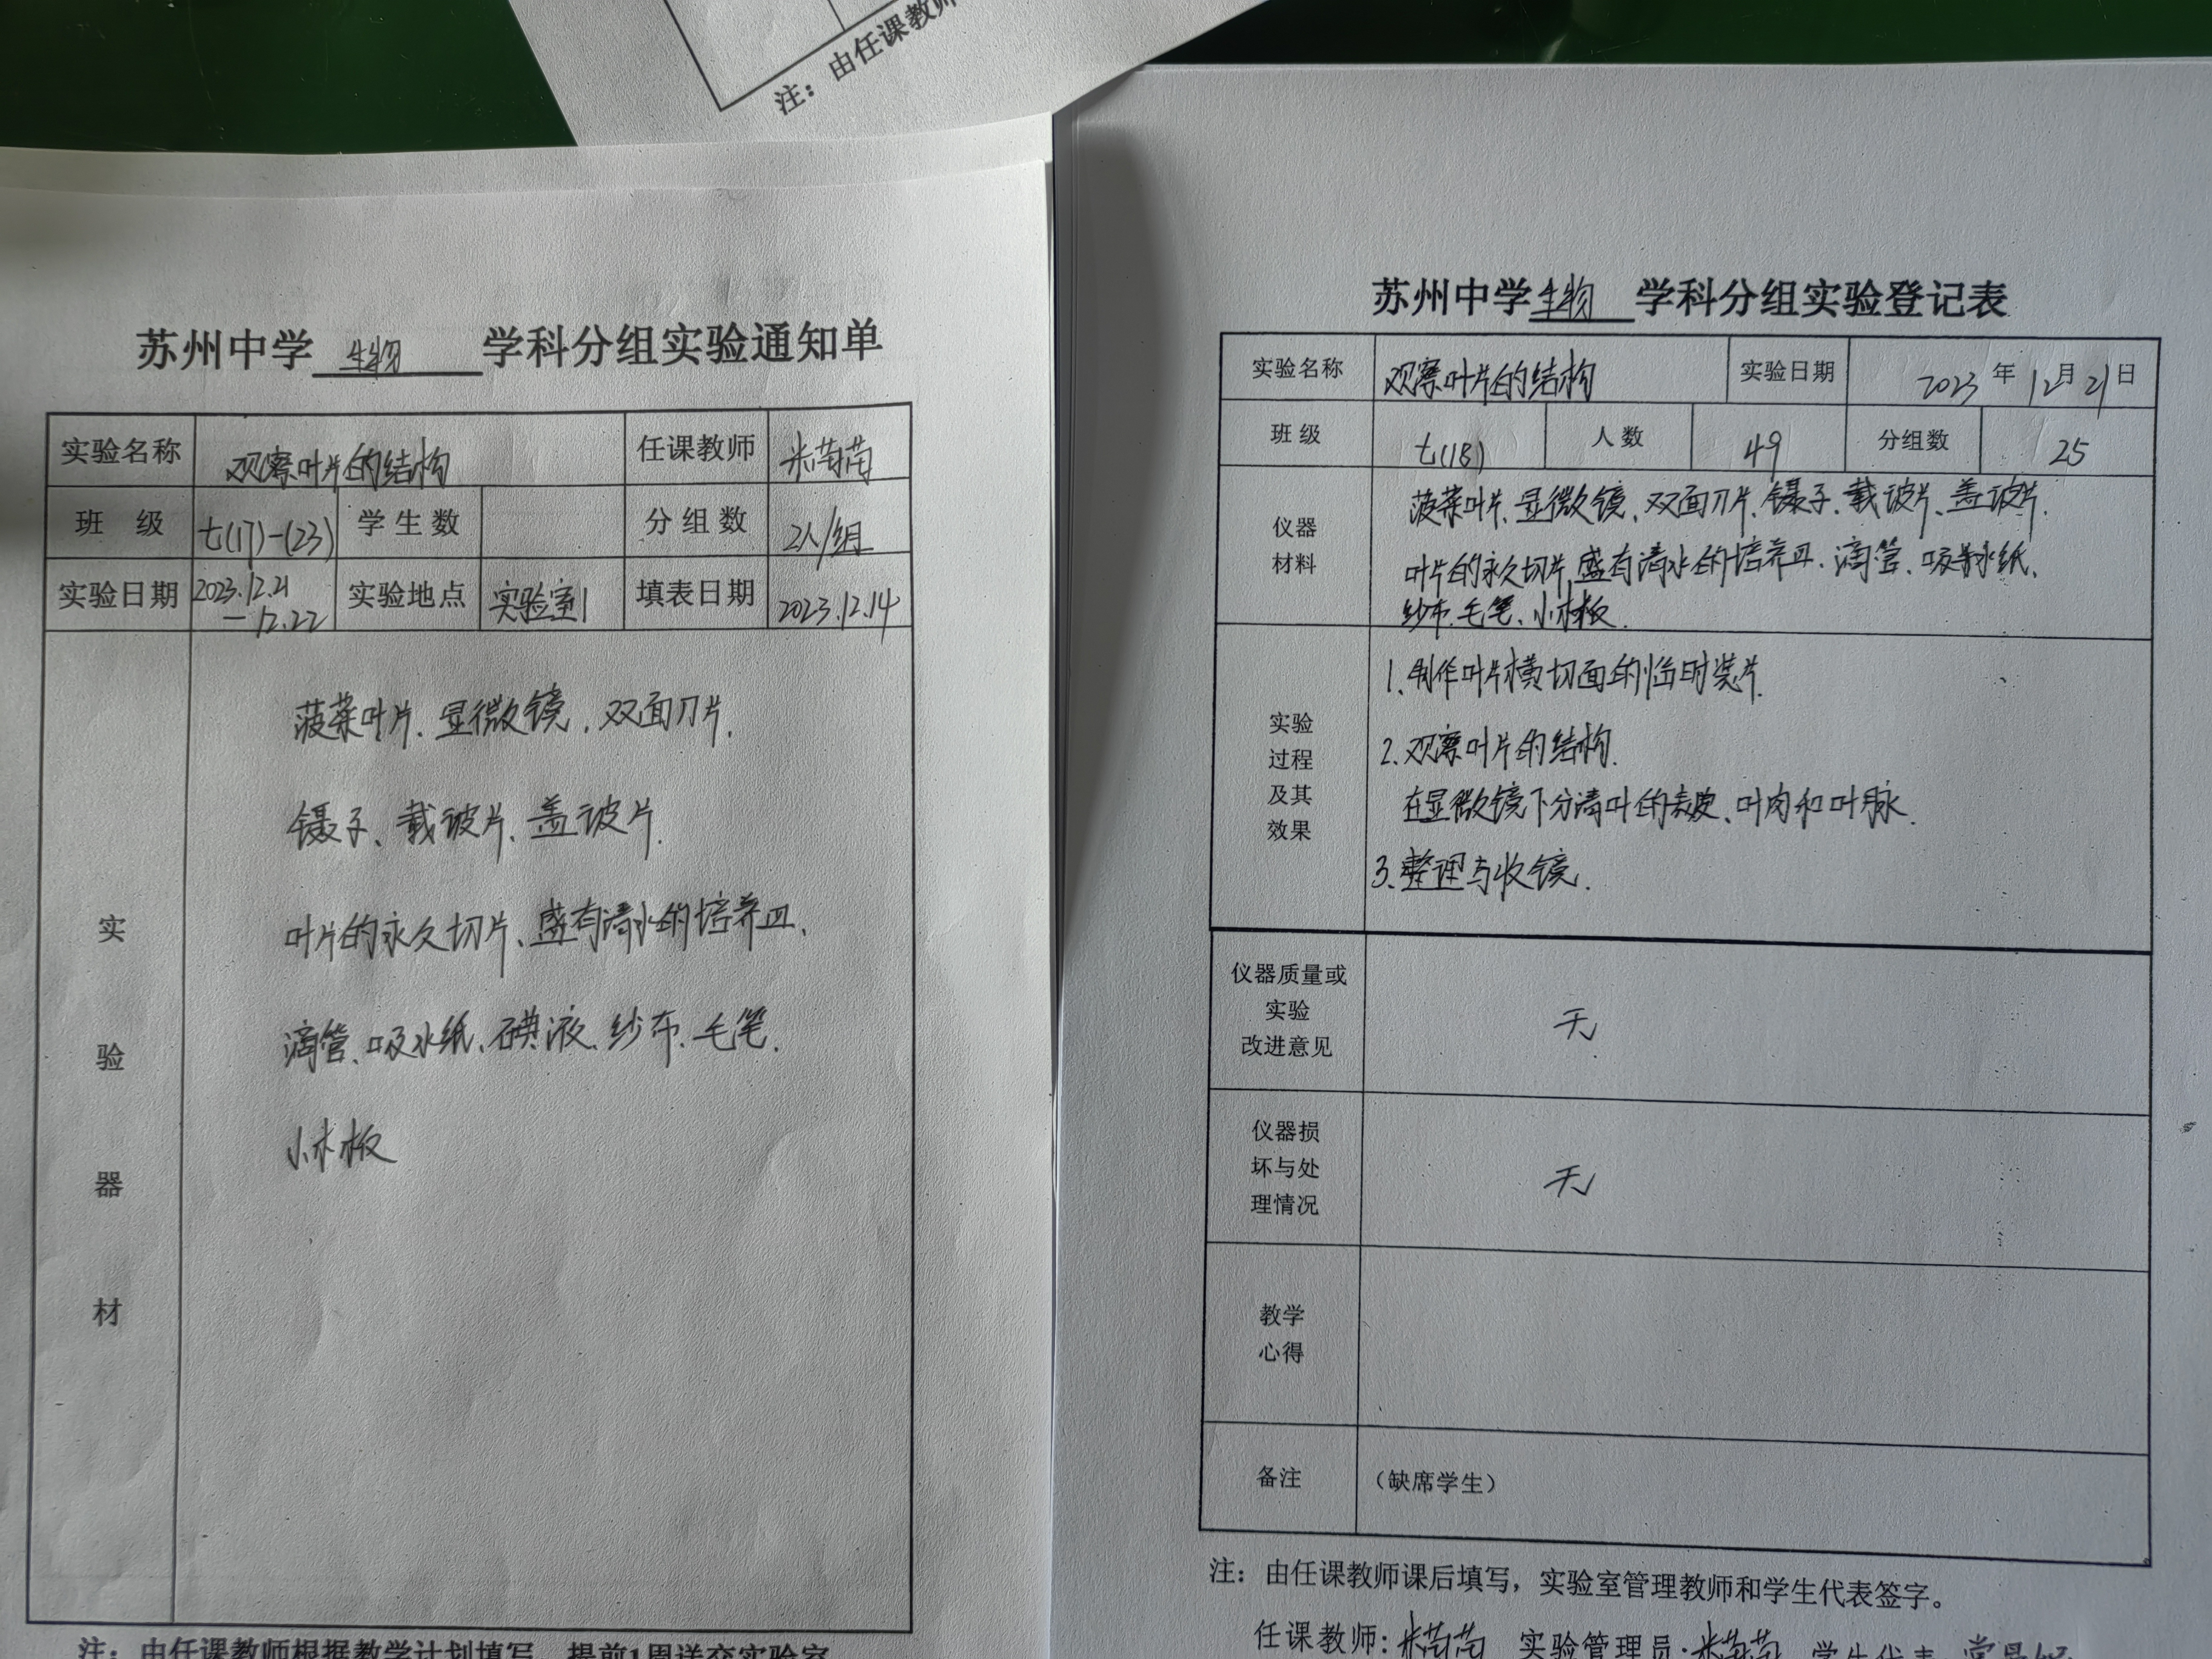 注：由任课教师
苏州中学生物学科分组实验通知单
实验名称 观察叶片的结构 任课教师 米茜茜
班 级 七(17)-(23) 学生数 分组数 2人/组
实验日期 2023.12.21-12.22 实验地点 实验室1 填表日期 2023.12.14
实验器材
菠菜叶片、显微镜、双面刀片、
镊子、载玻片、盖玻片、
叶片的永久切片、盛有清水的培养皿、
滴管、吸水纸、碘液、纱布、毛笔、
小木板
注：由任课教师根据教学计划填写，提前1周送交实验室
苏州中学生物学科分组实验登记表
实验名称 观察叶片的结构 实验日期 2023年12月21日
班 级 七(18) 人数 49 分组数 25
仪器材料
菠菜叶片、显微镜、双面刀片、镊子、载玻片、盖玻片、
叶片的永久切片、盛有清水的培养皿、滴管、吸水纸、
纱布、毛笔、小木板.
实验过程及其效果
1.制作叶片横切面的临时装片.
2.观察叶片的结构.
在显微镜下分清叶的表皮、叶肉和叶脉.
3.整理与收镜.
仪器质量或实验改进意见 无
仪器损坏与处理情况 无
教学心得
备注 （缺席学生）
注：由任课教师课后填写，实验室管理教师和学生代表签字。
任课教师：米茜茜 实验管理员：米茜茜 学生代表